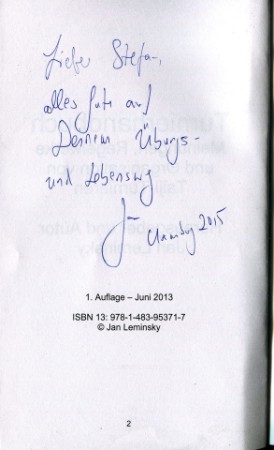 Lieber Stefan,
alles Gute auf
Deinem Übungs-
und Lebensweg
Jan Hamburg 2015
1. Auflage – Juni 2013
ISBN 13: 978-1-483-95371-7
© Jan Leminsky
2